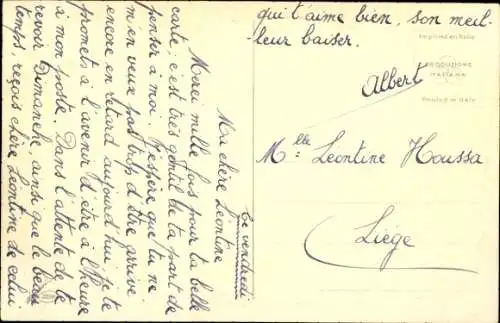 Le vendredi
Ma chère Léontine
Merci mille fois pour ta belle
carte; c'est très gentil de ta part de
penser à moi. J'espère que tu ne
m'en veux pas trop d'être arrivé
encore en retard aujourd'hui, je te
promets à l'avenir d'être à l'heure
à mon poste. Dans l'attente de te
revoir Dimanche ainsi que le beau
temps, reçois chère Léontine de celui
qui t'aime bien, son meil
leur baiser.
Albert
Imprimé en Italie
PRODUZIONE
ITALIANA
Printed in Italy
Mlle Léontine Houssa
Liège